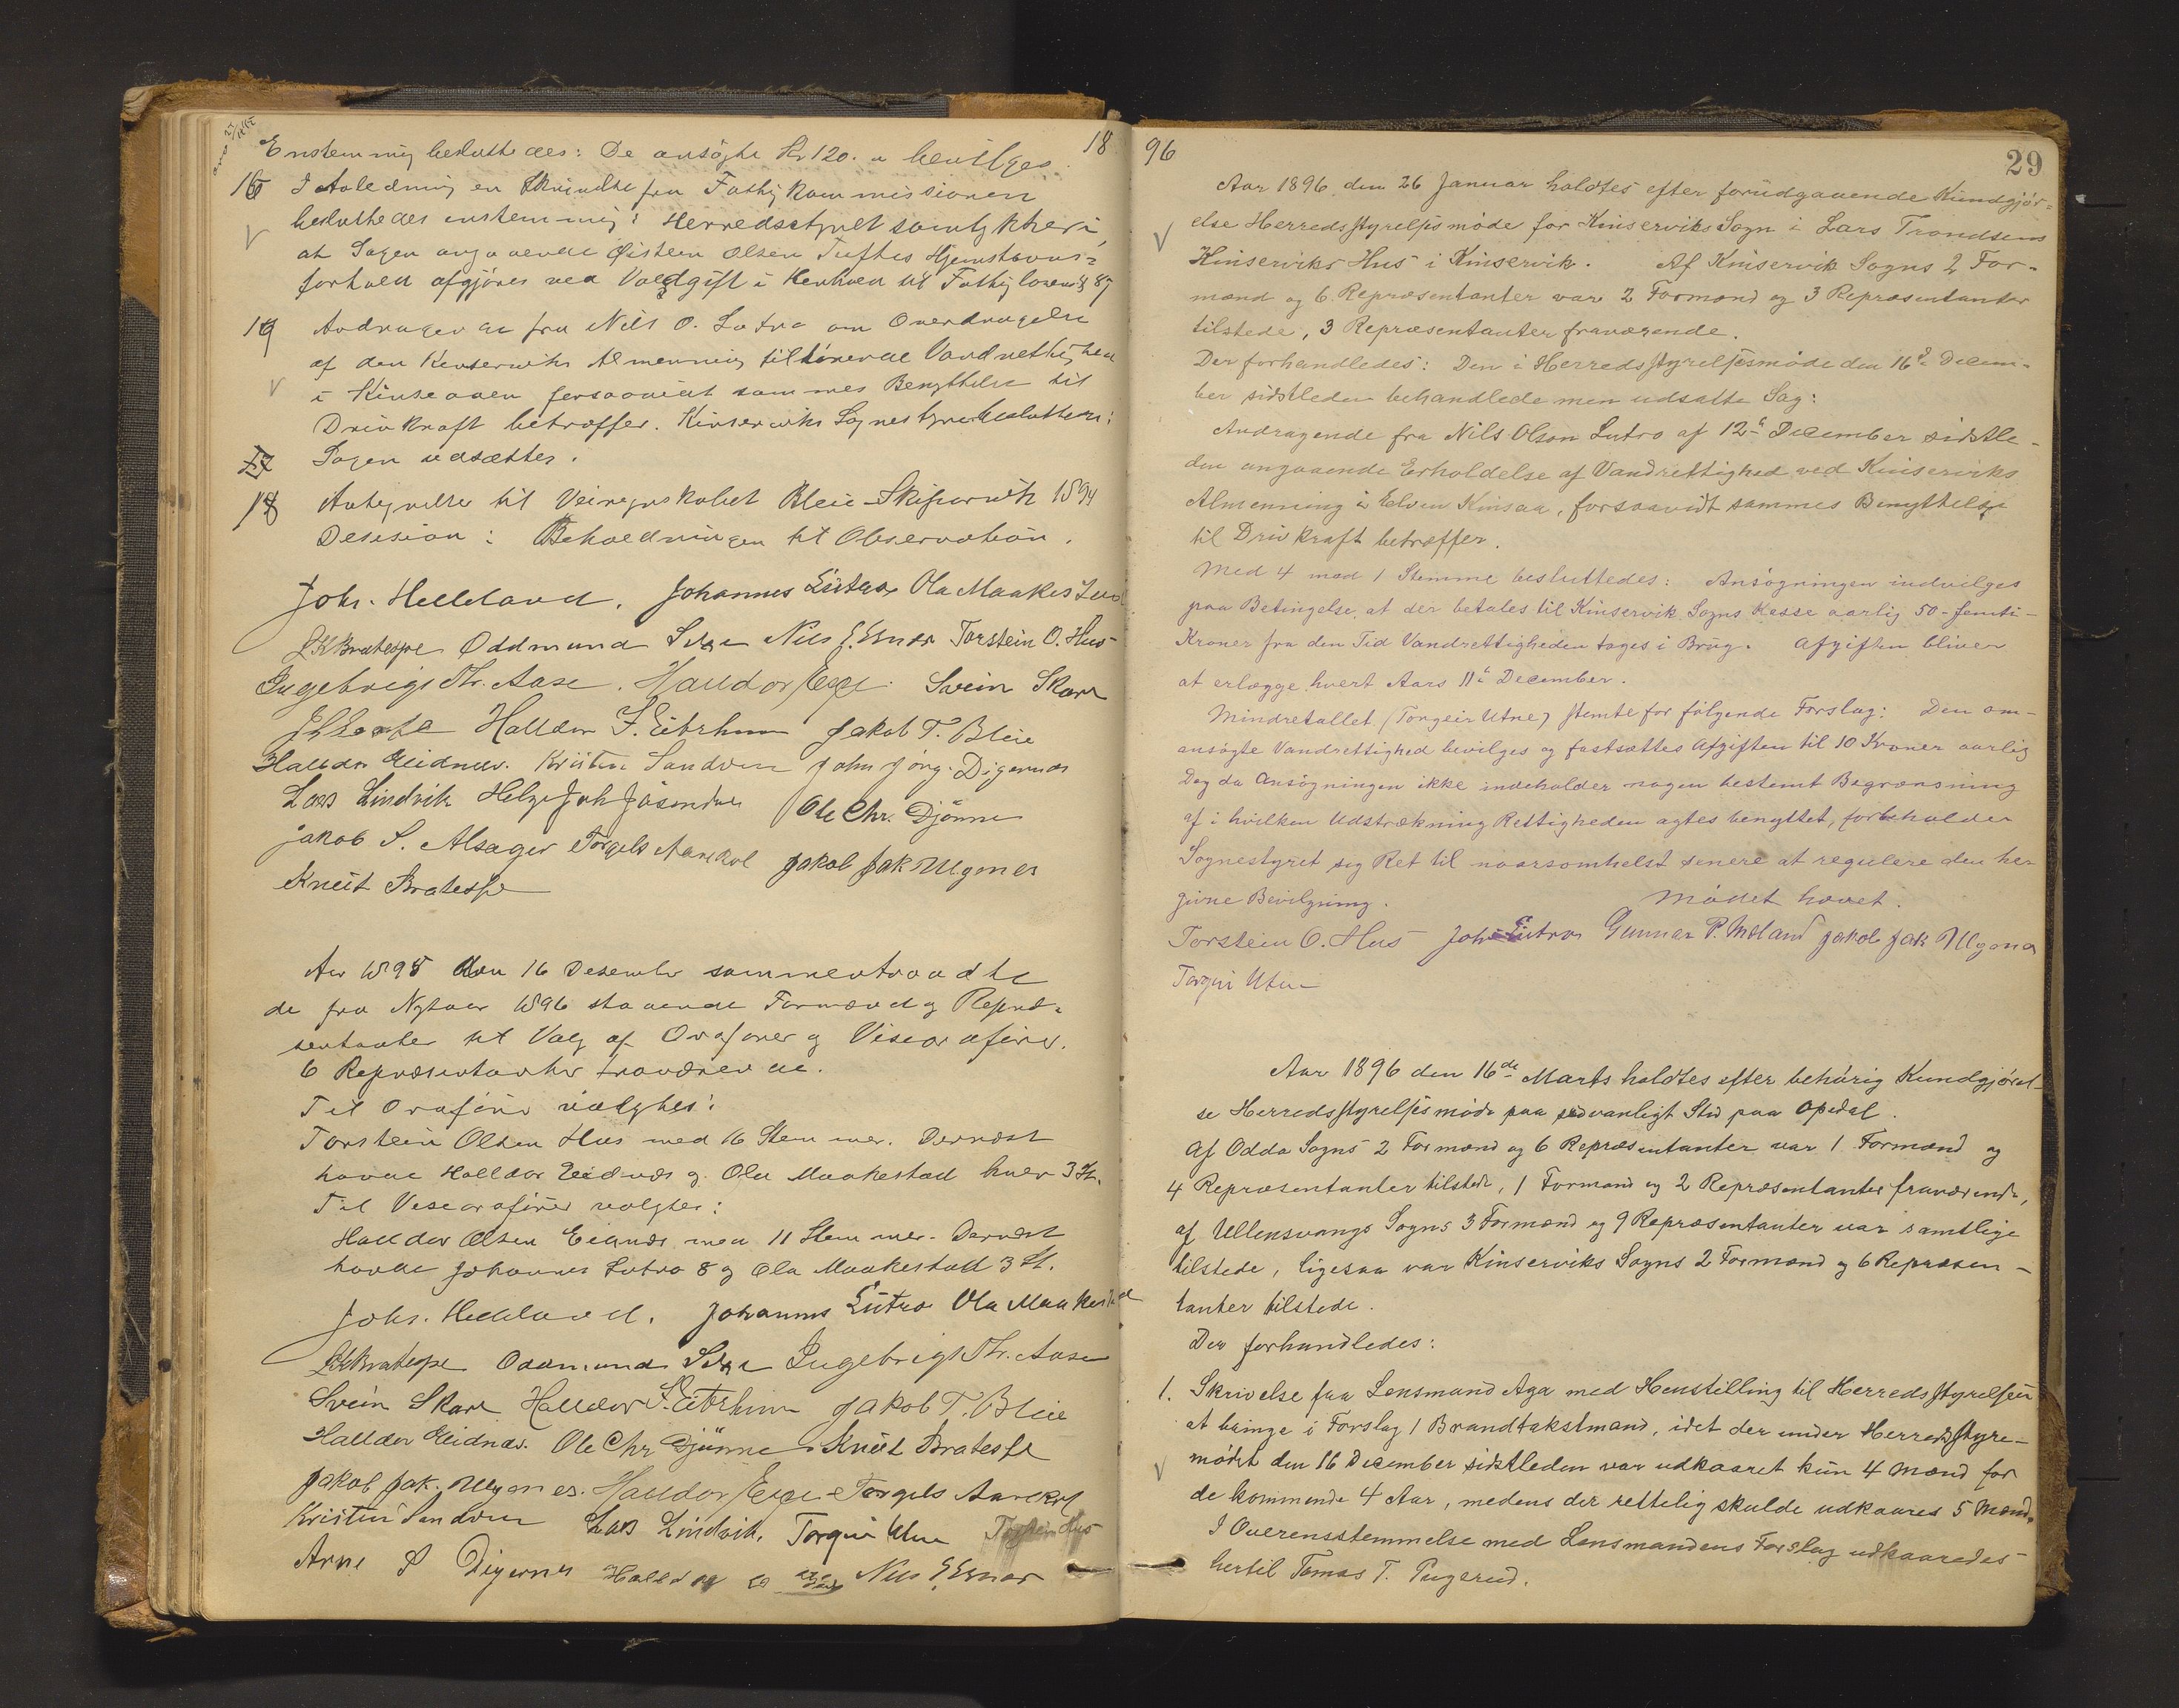 18
Enstemmig besluttedes: De ansøgte Kr 120. " bevilges.
16 I Anledning en Skrivelse fra Fattigkommissionen
besluttedes enstemmig: Herredsstyret samtykker i,
at Sagen angaaende Øistein Olsen Tuftes Hjemstavns=
forhold afgjøres ved Voldgift i Henhold til Fattiglovens § 87
19 Andragende fra Nils O. Lutro om Overdragelse
af den Kinserviks Almenning tilhørende Vandrettighed
i Kinsoaaen forsaavidt sammes Benyttelse til
Drivkraft betræffer. Kinserviks Sognestyre besluttede:
17 Sagen udsættes.
18 Antegnelse til Veiregnskabet Bleie-Skiparvik 1894
Desision: Beholdningen til Observation.
Johs. Helleland. Johannes Lutro Ola Maakestad
LKBratespe Oddmund Selje Nils E. Esnær Torstein O. Hus
Ingebrigt Th. Aase. Halldor Eige. Svein Skare
Halldor F. Eitrheim Jakob T. Bleie
Halldor Eidnæs. Kristen Sandven John Jörg. Digernes
Lars Lindvik Helge Joh Jåsendal Ole Chr. Djönne
Jakob S. Alsager Torgels Aarekol Jakob Jak Mygnes
Kneut Bratespe
Aar 1895 den 16 Desember sammentraadte
de fra Nytaar 1896 staaende Formænd og Repræ-
sentanter til Valg af Ordfører og Viseordfører.
6 Repræsentanter fraværende.
Til Ordfører valgtes:
Torstein Olsen Hus med 16 Stemmer. Dernæst
havde Halldor Eidnæs og Ola Maakestad hver 3 St.
Til Viseordfører valgtes:
Halldor Olsen Eidnæs med 11 Stemmer. Dernæst
havde Johannes Lutro 8 og Ola Maakestad 3 St.
Johs. Helleland. Johannes Lutro Ola Maakestad
LKBratespe Oddmund Selje Ingebrigt Th. Aase
Svein Skare Halldor F. Eitrheim Jakob T. Bleie
Halldor Eidnæs. Ole Chr Djönne Knut Bratespe
Jakob Jak. Mygnes. Halldor Eige Torgels Aarekol
Kristen Sandven Lars Lindvik. Torgeir Utne Torstein Hus
Arne Digernes Halldor Nils E. Esnær
96
29
Aar 1896 den 26 Januar holdtes efter forudgaaende Kundgjör=
else Herredsstyrelsesmöde for Kinserviks Sogn i Lars Trondsens
Kinserviks Hus i Kinservik. Af Kinservik Sogns 2 For-
mænd og 6 Repræsentanter var 2 Formænd og 3 Repræsentanter
tilstede, 3 Repræsentanter fraværende.
Der forhandledes: Den i Herredsstyrelsesmöde den 16de Decem-
ber sidstleden behandlede men udsatte Sag:
Andragende fra Nils Olson Lutro af 12te December sidstle-
den angaaende Erholdelse af Vandrettighed ved Kinserviks
Almenning i Elven Kinsaa, forsaavidt sammes Benyttelse
til Drivkraft betræffer.
Med 4 mod 1 Stemme besluttedes: Ansögningen indvilges
paa Betingelse at der betales til Kinservik Sogns Kasse aarlig 50 - femti -
Kroner fra den Tid Vandrettigheden tages i Brug. Afgiften bliver
at erlægge hvert Aars 11te December.
Mindretallet (Torgeir Utne) stemte for fölgende Forslag: Den om-
ansögte Vandrettighed bevilges og fastsættes Afgiften til 10 Kroner aarlig
Dog da Ansögningen ikke indeholder nogen bestemt Begrænsning
af i hvilken Udstrækning Rettigheden agtes benyttet, forbeholder
Sognestyret sig Ret til naarsomhelst senere at regulere den her
givne Bevilgning. Mödet hævet.
Torstein O. Hus Joh Lutro Gunnar P. Mæland Jakob Jak Mygna
Torgeir Utne
Aar 1896 den 16de Marts holdtes efter behörig Kundgjörel-
se Herredsstyrelsesmöde paa sedvanligt Sted paa Opedal.
Af Odda Sogns 2 Formænd og 6 Repræsentanter var 1 Formænd og
4 Repræsentanter tilstede, 1 Formand og 2 Repræsentanter fraværende,
af Ullensvangs Sogns 3 Formænd og 9 Repræsentanter var samtlige
tilstede, ligesaa var Kinserviks Sogns 2 Formænd og 6 Repræsen-
tanter tilstede.
Der forhandledes:
1. Skrivelse fra Lensmand Aga med Henstilling til Herredsstyrelsen
at bringe i Forslag 1 Brandtakstmand, idet der under Herredsstyre-
mödet den 16 December sidstleden var udkaaret kun 4 Mænd for
de kommende 4 Aar, medens der rettelig skulde udkaares 5 Mænd.
I Overensstemmelse med Lensmandens Forslag udkaaredes
hertil Tomas T. Pugerud.